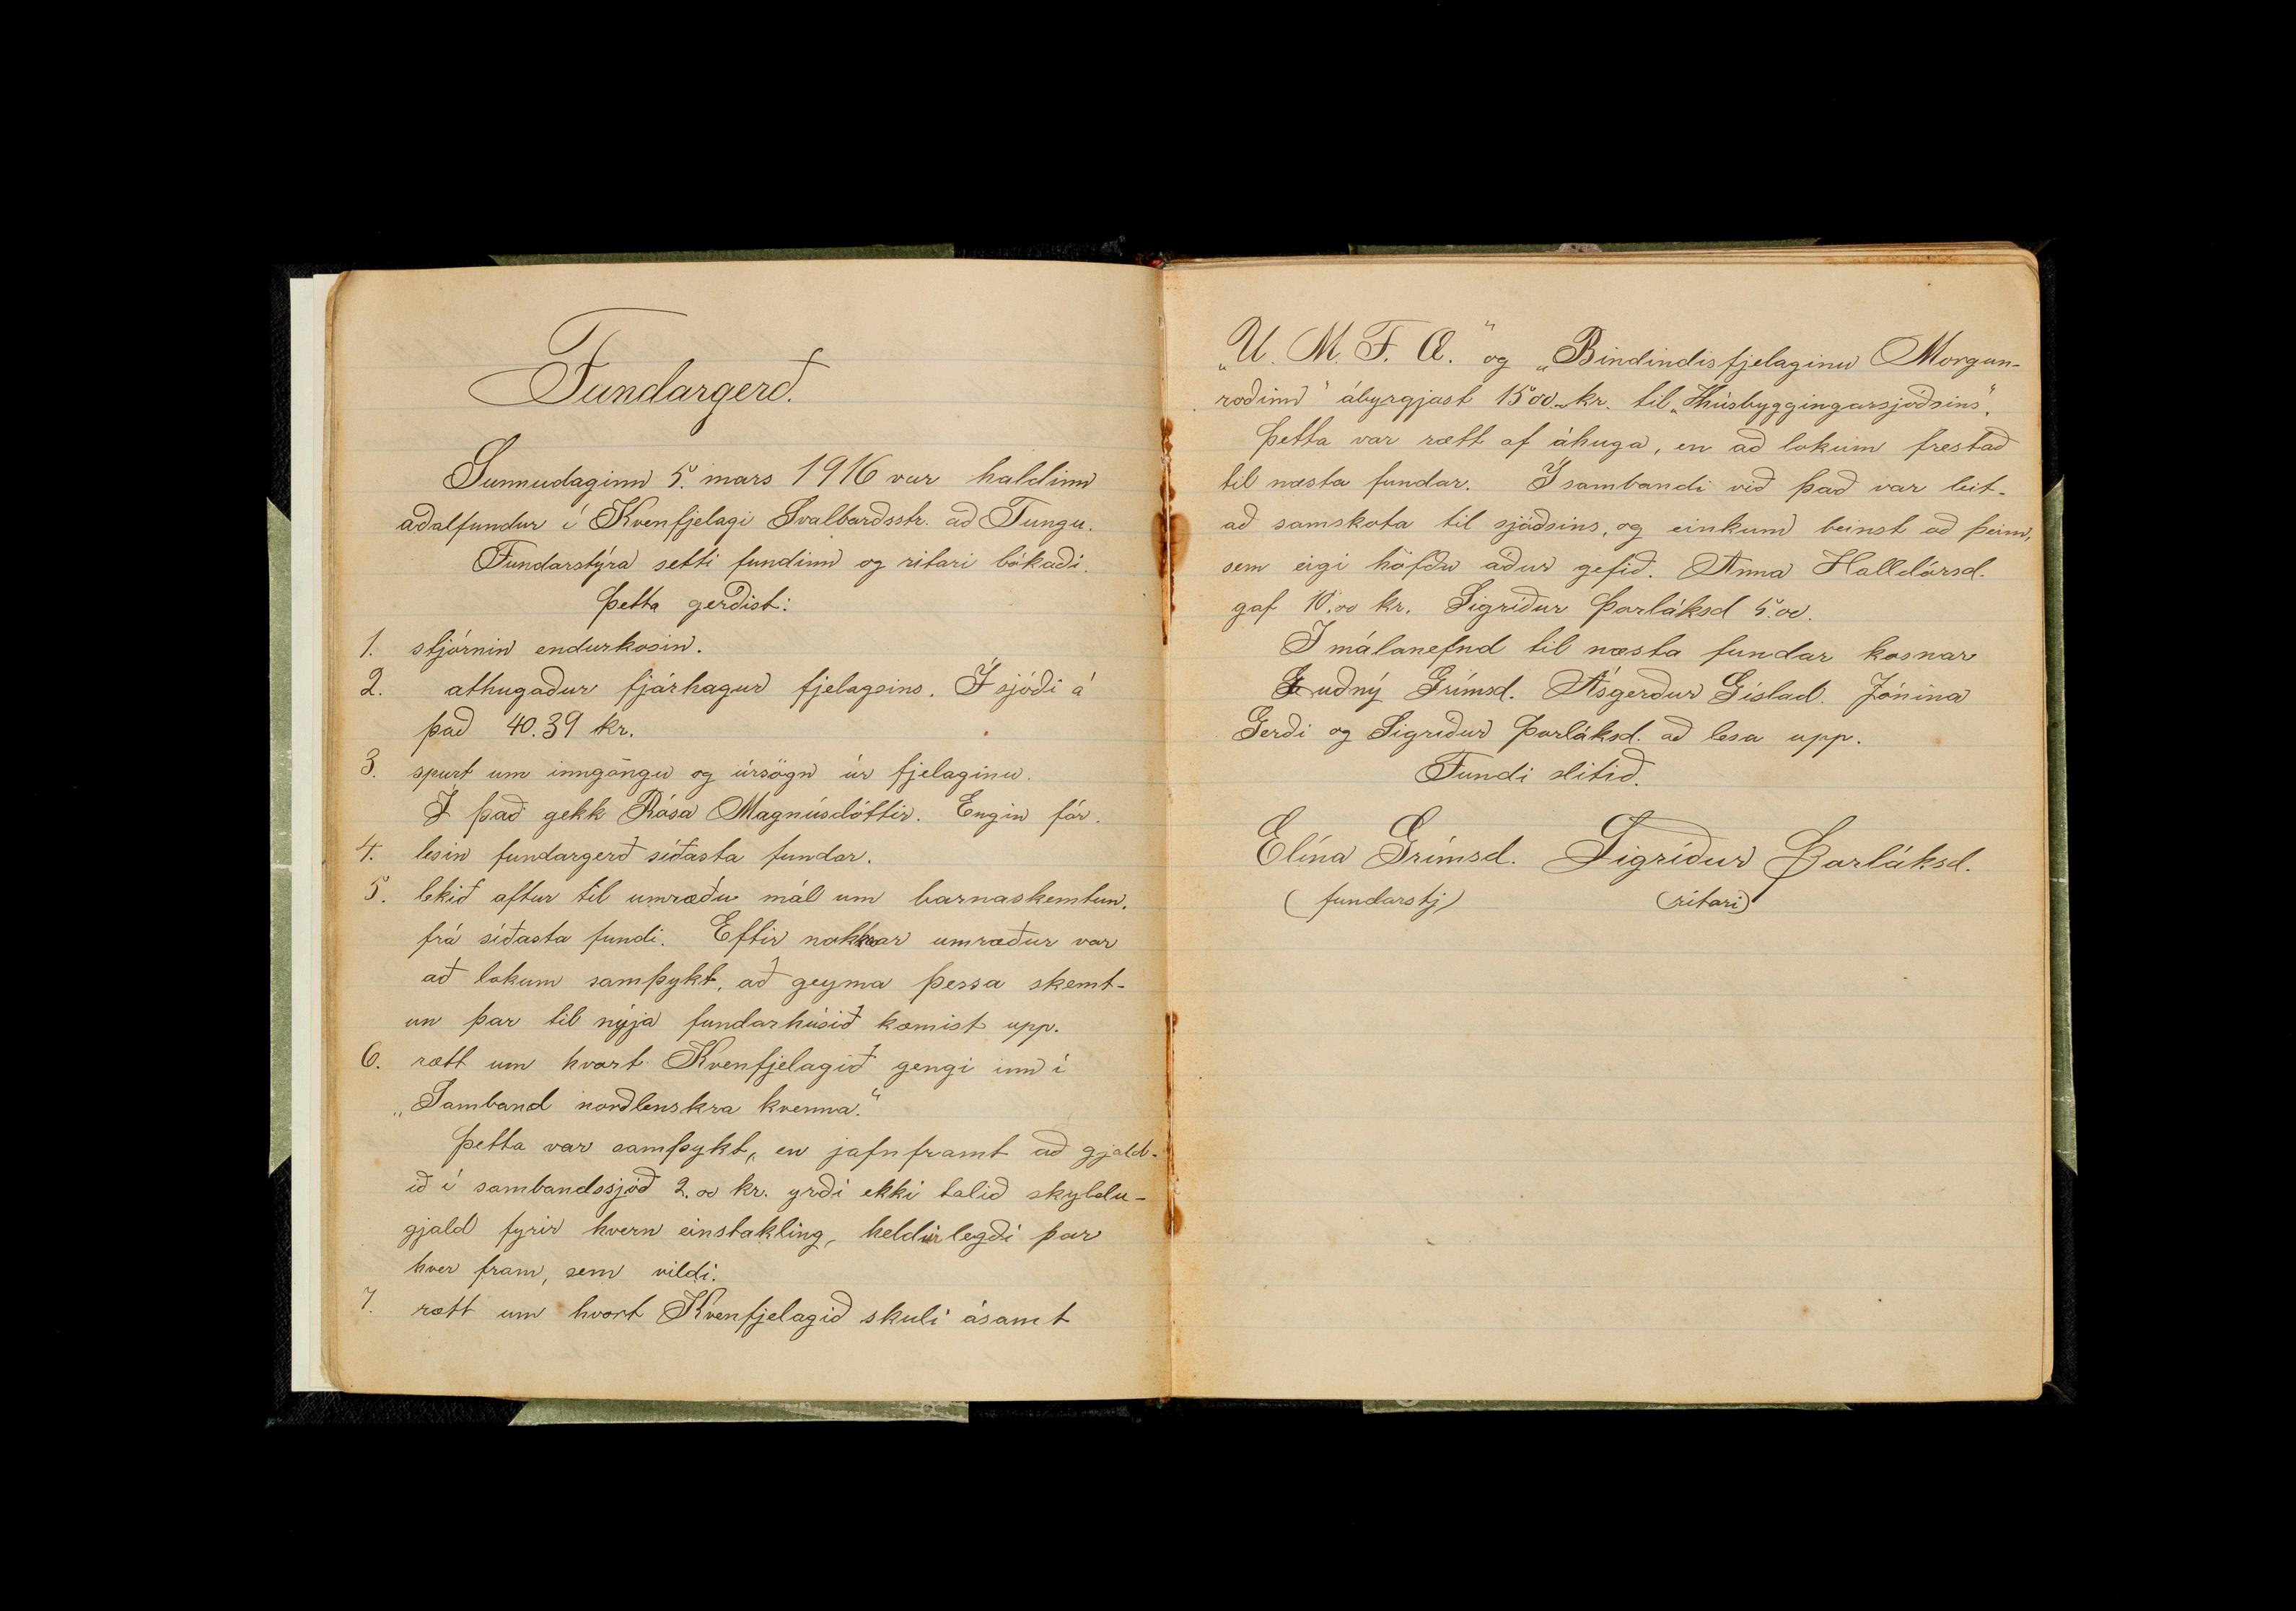 Fundargerð.
Sunnudaginn 5. mars 1916 var haldinn
aðalfundur í Kvenfjelagi Svalbarðsstr. að Tungu.
Fundarstýra setti fundinn og ritari bókaði.
Þetta gerðist:
1. stjórnin endurkosin.
2. athugaður fjárhagur fjelagsins. Í sjóði á
það 40.39 kr.
3. spurt um inngöngu og úrsögn úr fjelaginu.
Í það gekk Rósa Magnúsdóttir. Engin fór.
4. lesin fundargerð síðasta fundar.
5. tekið aftur til umræðu mál um barnaskemtun.
frá síðasta fundi. Eftir nokkrar umræður var
að lokum samþykt, að geyma þessa skemt-
un þar til nýja fundarhúsið kæmist upp.
6. rætt um hvort Kvenfjelagið gengi inn í
„Samband norðlenskra kvenna."
Þetta var samþykt, en jafnframt að gjald-
ið í sambandssjóð 2.00 kr. yrði ekki talið skyldu-
gjald fyrir hvern einstakling, heldur legði þar
hver fram, sem vildi.
7. rætt um hvort Kvenfjelagið skuli ásamt
„U. M. F. Æ." og „Bindindisfjelaginu Morgun-
roðinn" ábyrgjast 1500 kr. til „Húsbyggingarsjóðsins".
Þetta var rætt af áhuga, en að lokum frestað
til næsta fundar. Í sambandi við það var leit-
að samskota til sjóðsins, og einkum beinst að þeim,
sem eigi höfðu áður gefið. Anna Halldórsd.
gaf 10.00 kr. Sigríður Þorláksd 5.00.
Í málanefnd til næsta fundar kosnar
Guðný Grímsd. Ásgerður Gíslad. Jónína
Gerði og Sigríður Þorláksd. að lesa upp.
Fundi slitið.
Elína Grímsd. Sigríður Þorláksd.
(fundarstj) (ritari)